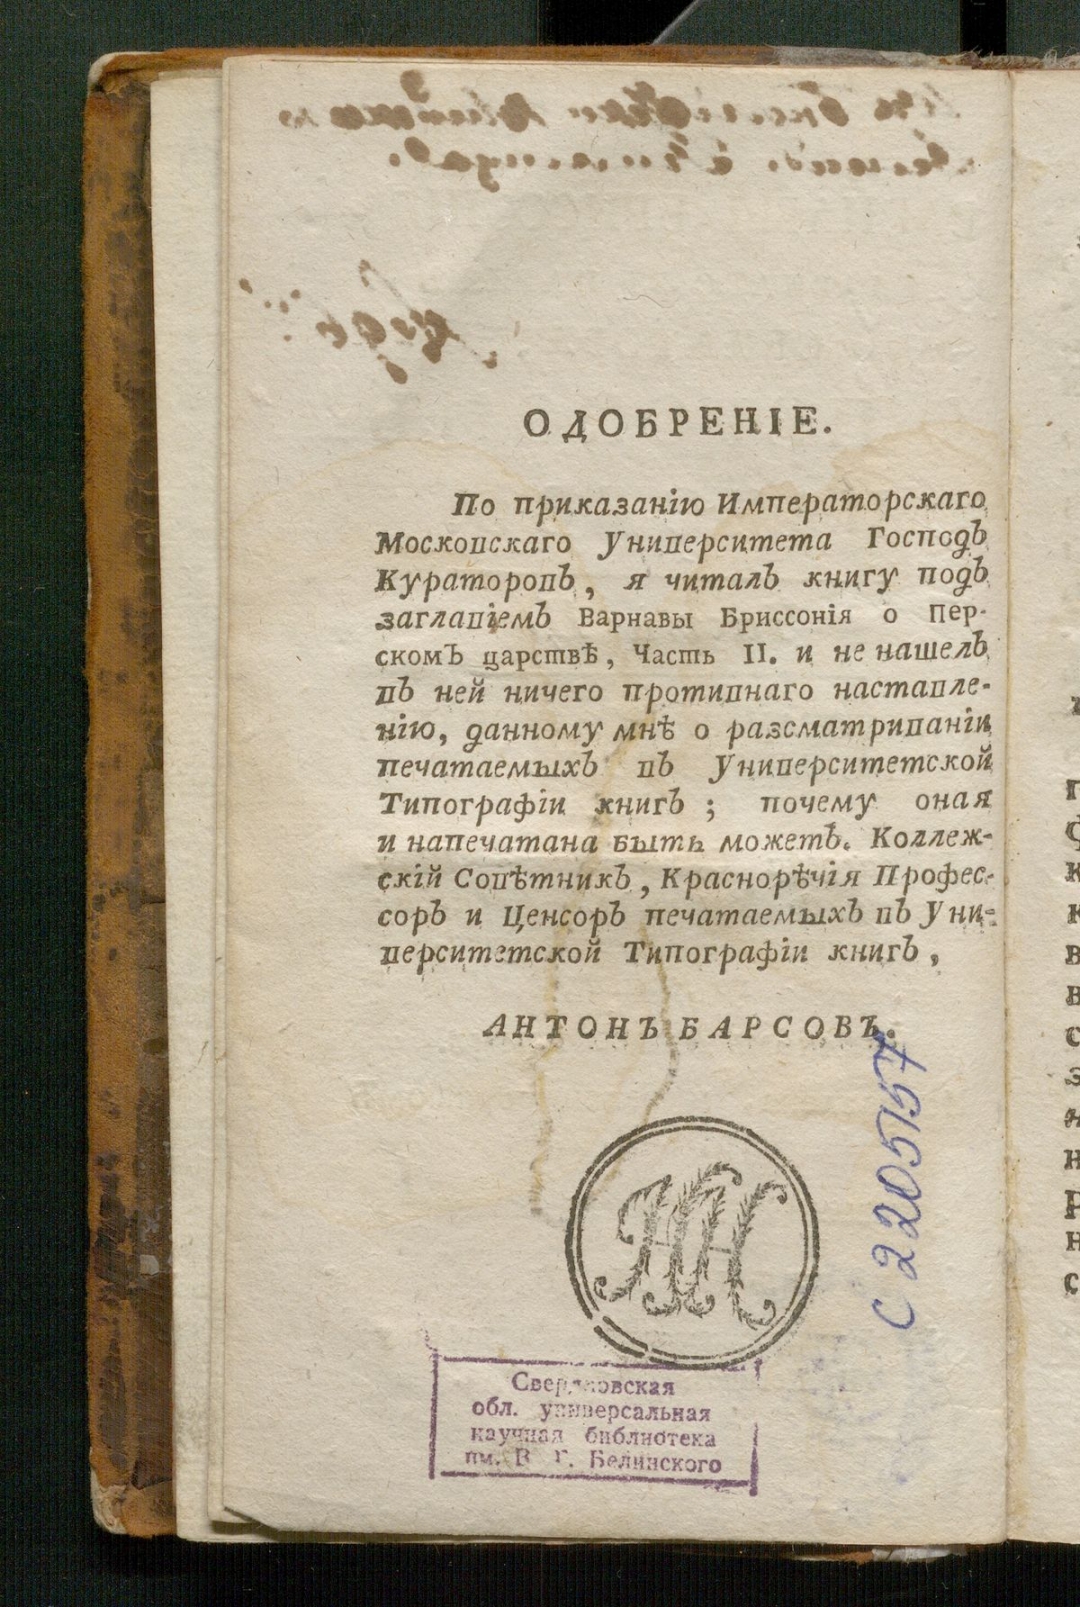 ОДОБРЕНІЕ.
По приказанію Императорскаго
Московскаго Университета Господъ
Кураторовъ, я читалъ книгу подъ
заглавіемъ Варнавы Бриссонія о Пер-
скомъ царствѣ, Часть II. и не нашелъ
въ ней ничего противнаго наставле-
нію, данному мнѣ о разсматриваніи
печатаемыхъ въ Университетской
Типографіи книгъ; почему оная
и напечатана быть можетъ. Коллеж-
скій Совѣтникъ, Краснорѣчія Профес-
соръ и Ценсоръ печатаемыхъ въ Уни-
верситетской Типографіи книгъ,
АНТОНЪ БАРСОВЪ.
С 2205157
Свердловская
обл. универсальная
научная библиотека
им. В. Г. Белинского